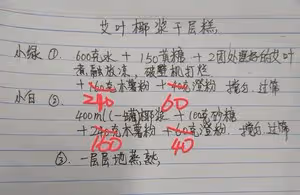 艾叶椰浆千层糕
小绿 ①. 600克水 + 150黄糖 + 2团处理好的艾叶
煮融放凉, 破壁机打烂
+ 160克木薯粉 + 40克澄粉 搅匀, 过筛
240 60
小白 ② 400ml(一罐)椰浆 + 100克砂糖
+ 240克木薯粉 + 60克澄粉. 搅匀, 过筛
160 40
③. 一层层地蒸熟